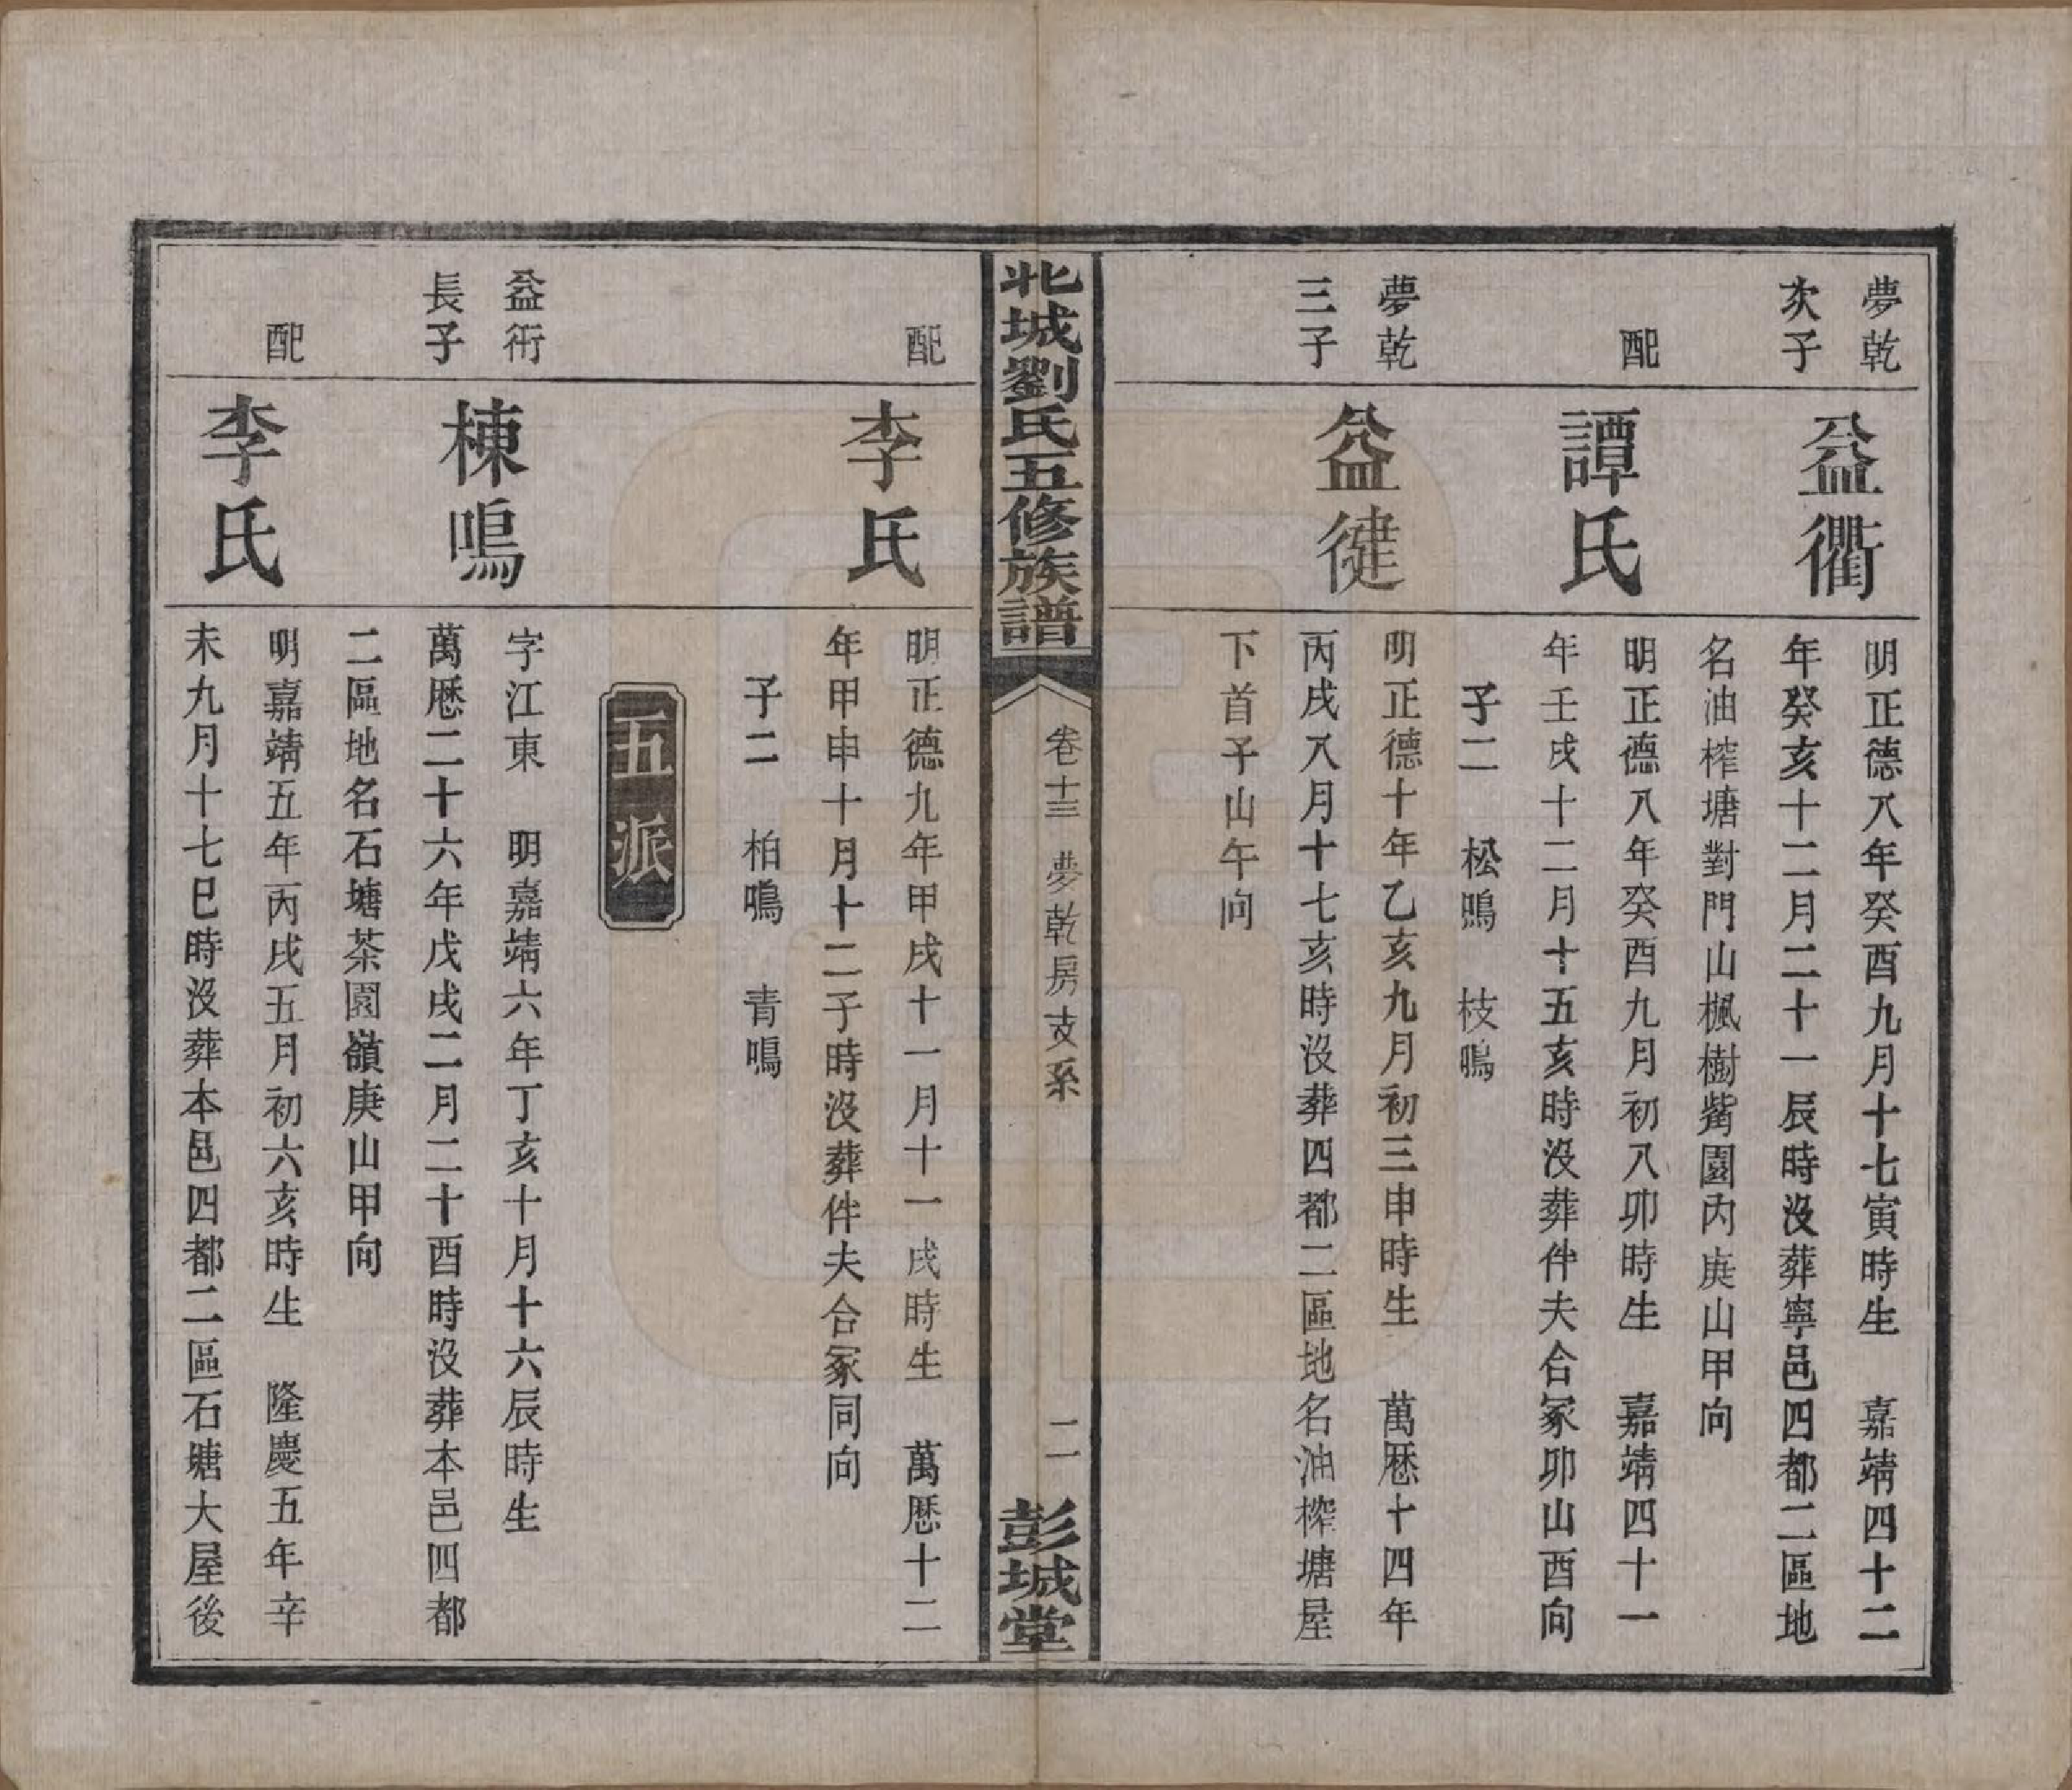 夢乾
次子
益衢
明正德八年癸酉九月十七寅時生　嘉靖四十二
年癸亥十二月二十一辰時沒葬寧邑四都二區地
名油榨塘對門山楓樹觜園內庚山甲向
配
譚氏
明正德八年癸酉九月初八卯時生　嘉靖四十一
年壬戌十二月十五亥時沒葬伴夫合冢卯山酉向
子二　松鳴　枝鳴
夢乾
三子
益徤
明正德十年乙亥九月初三申時生　萬歷十四年
丙戌八月十七亥時沒葬四都二區地名油榨塘屋
下首子山午向
北城劉氏五修族譜
卷十三　夢乾房支系
二
彭城堂
配
李氏
明正德九年甲戌十一月十一戌時生　萬歷十二
年甲申十月十二子時沒葬伴夫合冢同向
子二　柏鳴　青鳴
五派
益衍
長子
棟鳴
字江東　明嘉靖六年丁亥十月十六辰時生
萬歷二十六年戊戌二月二十酉時沒葬本邑四都
二區地名石塘茶園嶺庚山甲向
配
李氏
明嘉靖五年丙戌五月初六亥時生　隆慶五年辛
未九月十七巳時沒葬本邑四都二區石塘大屋後